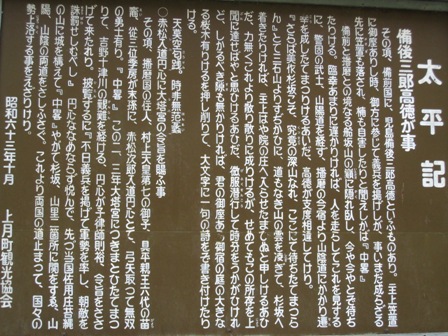 太平記
備後三郎高徳が事
その頃、備前国に、児島備後三郎高徳といふものあり。主上笠置
に御座ありし時、御方に参じて義兵を揚げしが、事いまだ成らざる
先に笠置も落され、楠も自害したりと聞えしかば、『中畧』
備前と播磨との境なる船坂山の嶺に隠れ臥し、今や今やとぞ待ち
たりける。臨幸あまりに遅かりければ、人を走らしてこれを見する
に、警固の武士、山陽道を経ず、播磨の今宿より山陰道にかかり遷
幸を成したてまつりけるあいだ、高徳が支度相違してけり。
『ここは美作杉坂こそ、究竟の深山なれ、ここにて待ちたてまつら
ん』とて三石山よりすぢかひに、道もなき山の雲を凌ぎて、杉坂へ
着きたりければ、主上はや院の庄へ入らせたまひぬと申しけるあひ
だ、力無くこれより散り散りに成りけるが、せめてもこの所存を上
聞に達せばやと思ひけるあひだ、微服潜行して時分をうかがひけれ
ど、しかるべき隙も無かりければ、君の御座ある御宿の庭の大きな
る桜木有りけるを押し削りて、大文字に一句の詩をぞ書き付けたり
ける。
天莫空勾践。時非無范蠡
◎赤松入道円心に大塔宮の令旨を賜ふ事
その頃、播磨国の住人、村上天皇第七の御子、具平親王六代の苗
裔、従三位季房が末孫に、赤松次郎入道円心とて、弓矢取って無双
の勇士有り。『中畧』この二、三年大塔宮につきまとひたてまつ
りて、吉野十津川の艱難を経ける、円心が子律師則祐、令旨をささ
げて来たれり。披覧するに『不日義兵を揚げて軍勢を率し、朝敵を
誅罰せしむべし。』円心なのめならず悦んで、先づ当国佐用庄苔縄
の山に城を構えて『中畧』やがて杉坂、山里二箇所に関をすゑ、山
陽、山陰の両道をさしふさぐ。これより両国の道止まって、国々の
勢上洛する事をえざりけり。
昭和六十三年十月　上月町観光協会